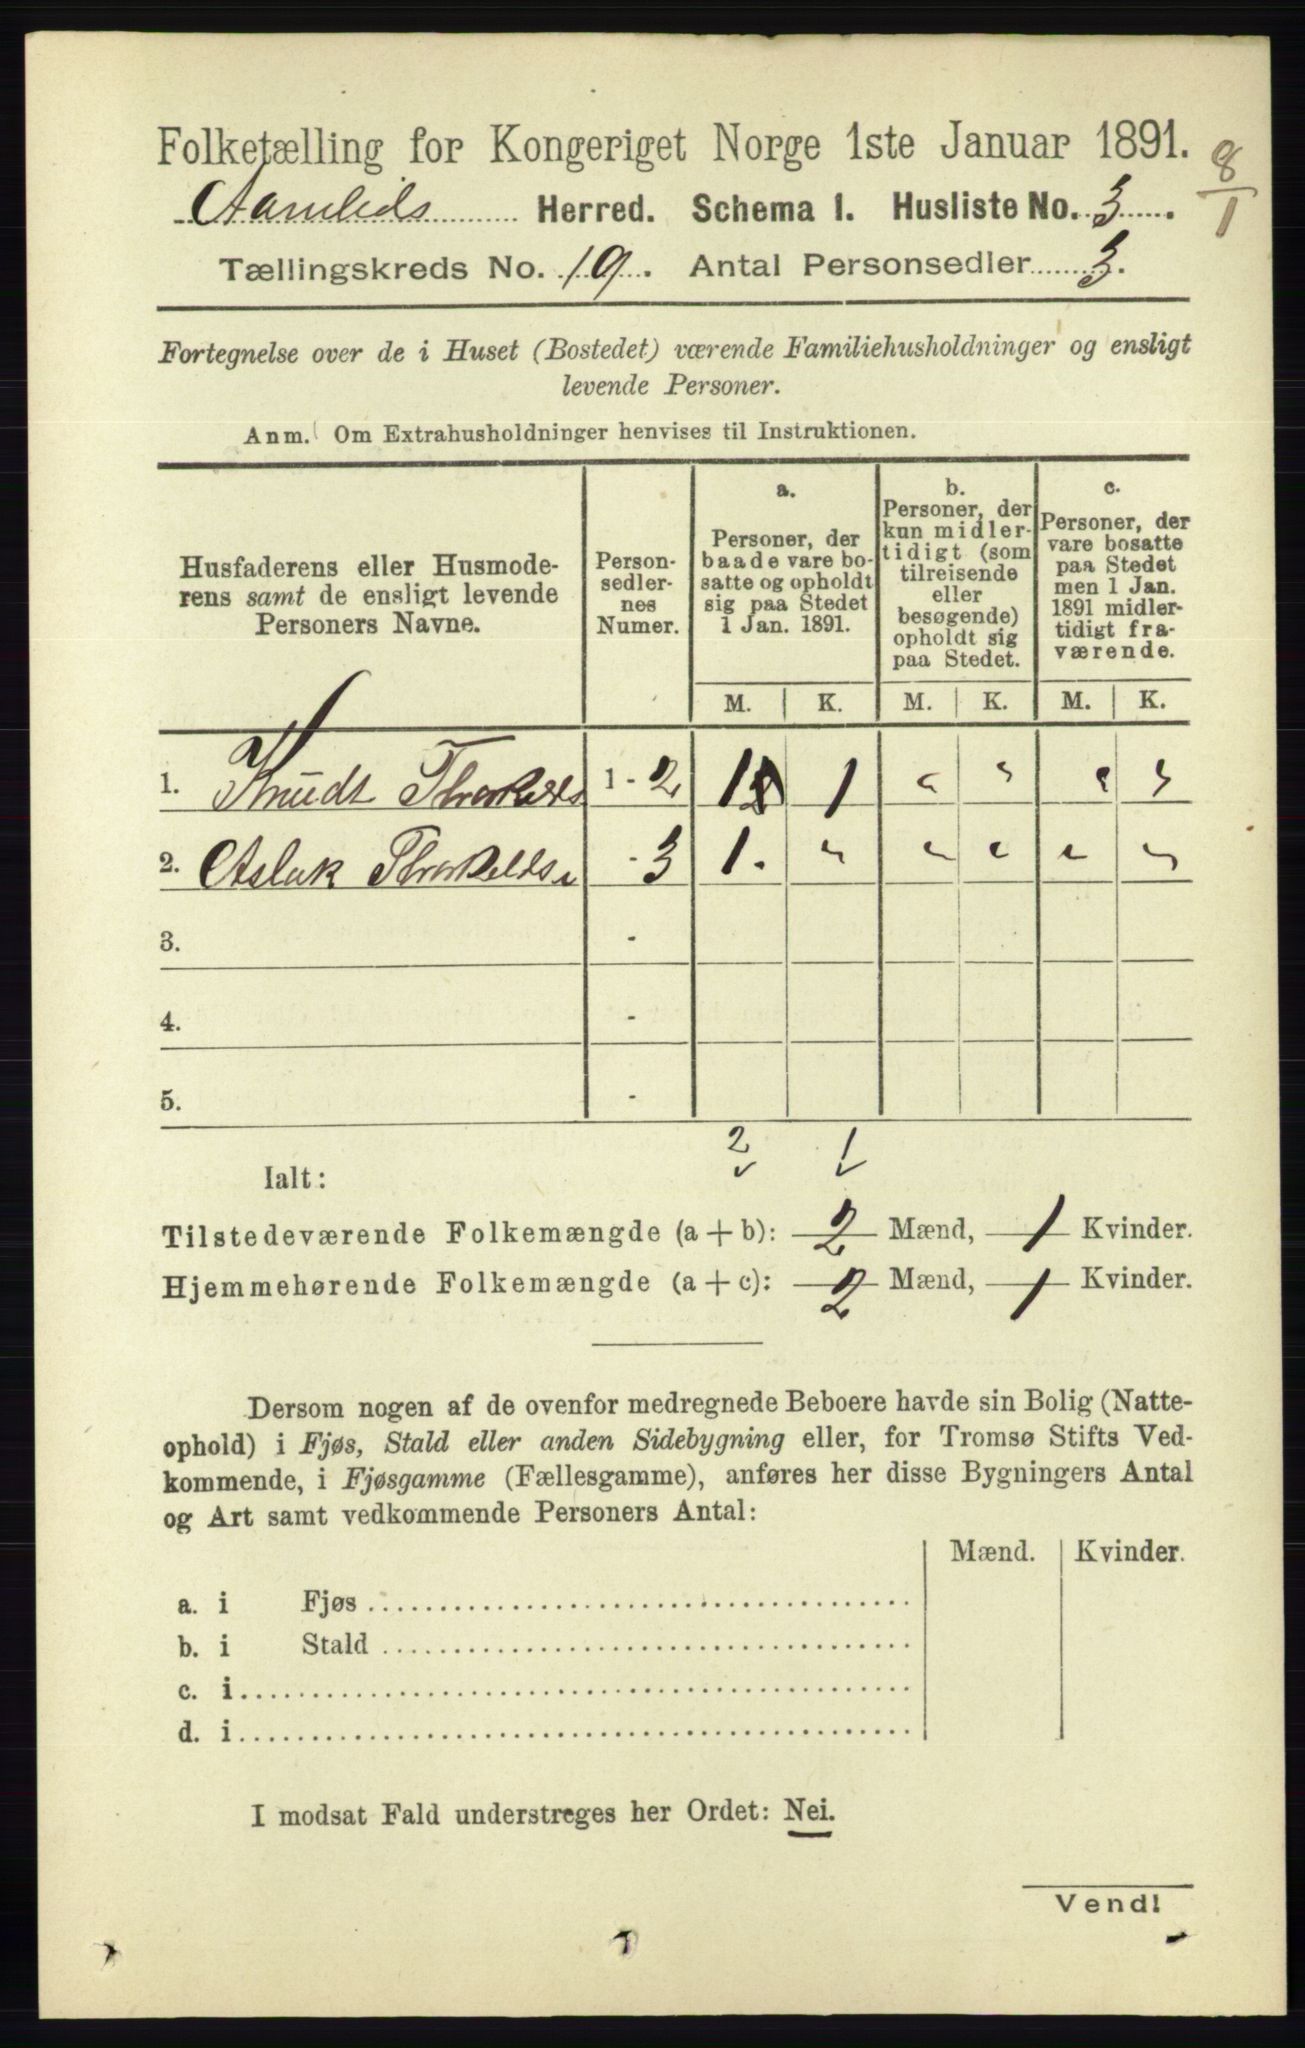 Folketælling for Kongeriget Norge 1ste Januar 1891.
8/1
Aamlids Herred. Schema 1. Husliste No. 3.
Tællingskreds No. 19. Antal Personsedler 3.
Fortegnelse over de i Huset (Bostedet) værende Familiehusholdninger og ensligt
levende Personer.
Anm. Om Extrahusholdninger henvises til Instruktionen.
Husfaderens eller Husmode-
rens samt de ensligt levende
Personers Navne.
Person-
sedler-
nes
Numer.
a.
Personer, der
baade vare bo-
satte og opholdt
sig paa Stedet
1 Jan. 1891.
b.
Personer, der
kun midler-
tidigt (som
tilreisende
eller
besøgende)
opholdt sig
paa Stedet.
c.
Personer, der
vare bosatte
paa Stedet
men 1 Jan.
1891 midler-
tidigt fra-
værende.
M. K. M. K. M. K.
1. Knudt 1 - 2 1 1 " " " "
2. Aslak - 3 1. " " " " "
3. -
4. -
5. -
2 1
Ialt:
Tilstedeværende Folkemængde (a + b): 2 Mænd, 1 Kvinder.
Hjemmehørende Folkemængde (a + c): 2 Mænd, 1 Kvinder.
Dersom nogen af de ovenfor medregnede Beboere havde sin Bolig (Natte-
ophold) i Fjøs, Stald eller anden Sidebygning eller, for Tromsø Stifts Ved-
kommende, i Fjøsgamme (Fællesgamme), anføres her disse Bygningers Antal
og Art samt vedkommende Personers Antal:
Mænd. Kvinder.
a. i Fjøs
b. i Stald
c. i
d. i
I modsat Fald understreges her Ordet: Nei.
Vend!